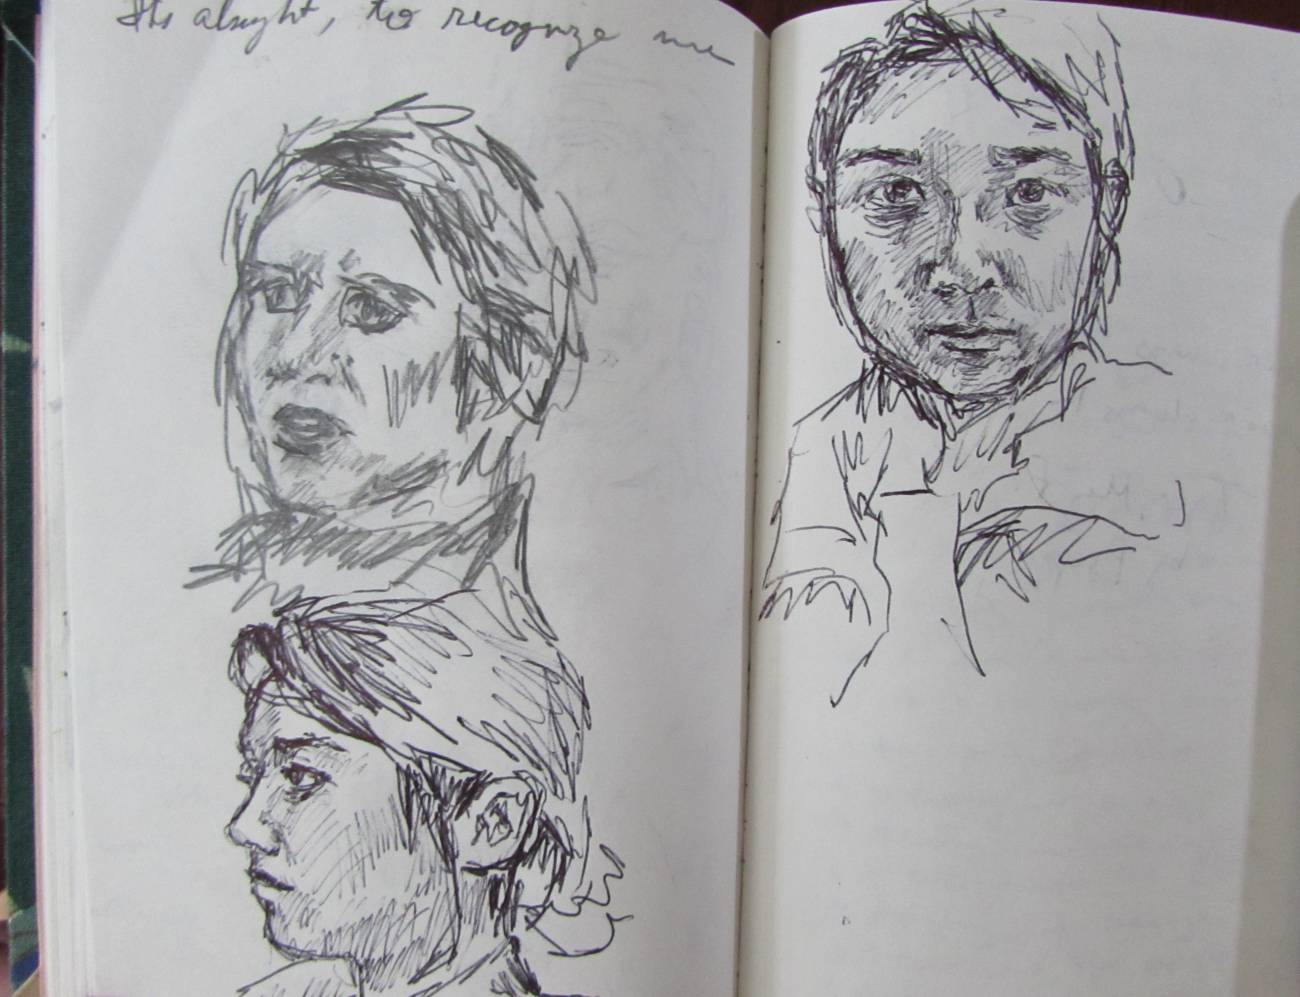 Its alright, to recognize me